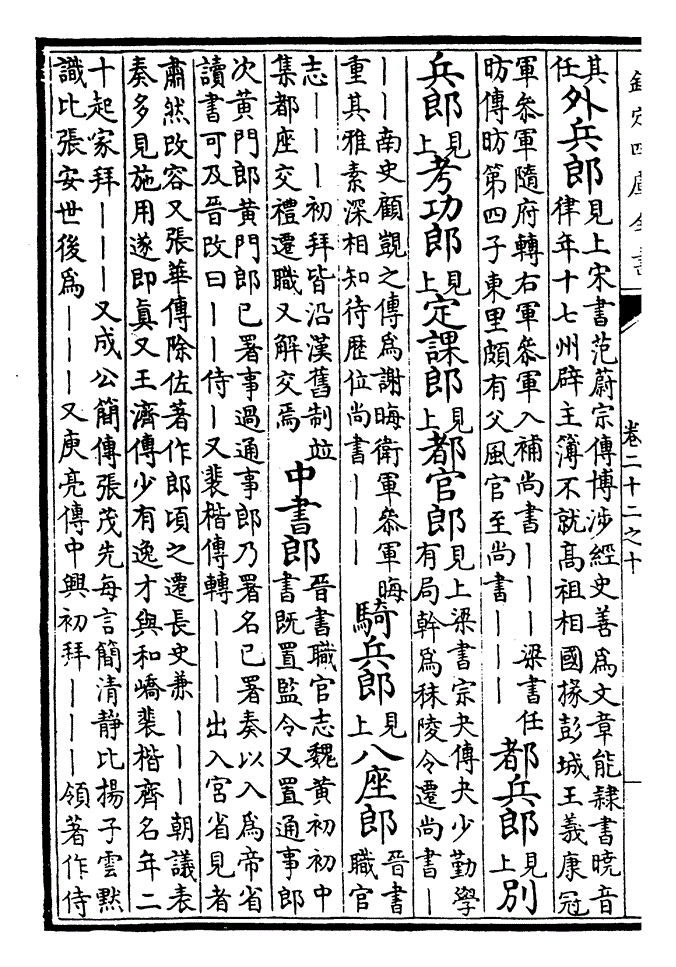 欽定四庫全書 卷二十二之十
其任外兵郎見上宋書范蔚宗傳博涉經史善為文章能隷書曉音
律年十七州辟主簿不就髙祖相國掾彭城王義康冠
軍叅軍隨府轉右軍叅軍入補尚書丨丨丨梁書任
昉傳昉第四子東里頗有父風官至尚書丨丨丨都兵郎見上別
兵郎見上考功郎見上定課郎見上都官郎見上梁書宗夬傳夬少勤學
有局幹為秣陵令遷尚書丨
丨丨南史顧覬之傳為謝晦衛軍叅軍晦
重其雅素深相知待歴位尚書丨丨丨騎兵郎見上八座郎晉書職官
志丨丨丨初拜皆沿漢舊制竝
集都座交禮遷職又解交焉中書郎晉書職官志魏黄初初中
書既置監令又置通事郎
次黄門郎黄門郎已署事過通事郎乃署名已署奏以入為帝省
讀書可及晉改曰丨丨侍丨又裴楷傳轉丨丨丨出入宫省見者
肅然改容又張華傳除佐著作郎頃之遷長史兼丨丨丨朝議表
奏多見施用遂即眞又王濟傳少有逸才與和嶠裴楷齊名年二
十起家拜丨丨丨又成公簡傳張茂先每言簡清靜比揚子雲黙
識比張安世後爲丨丨丨又庾亮傳中興初拜丨丨丨領著作侍